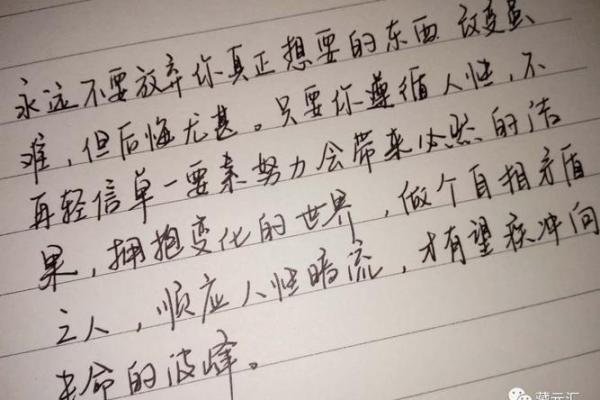 永远不要放弃你真正想要的东西 改变虽
难，但后悔尤甚。只要你遵循人性，不
再轻信单一要素努力会带来必然的结
果，拥抱变化的世界，做个自相矛盾
之人，顺应人性暗流，才有望疾冲向
生命的波峰。
藏元汇